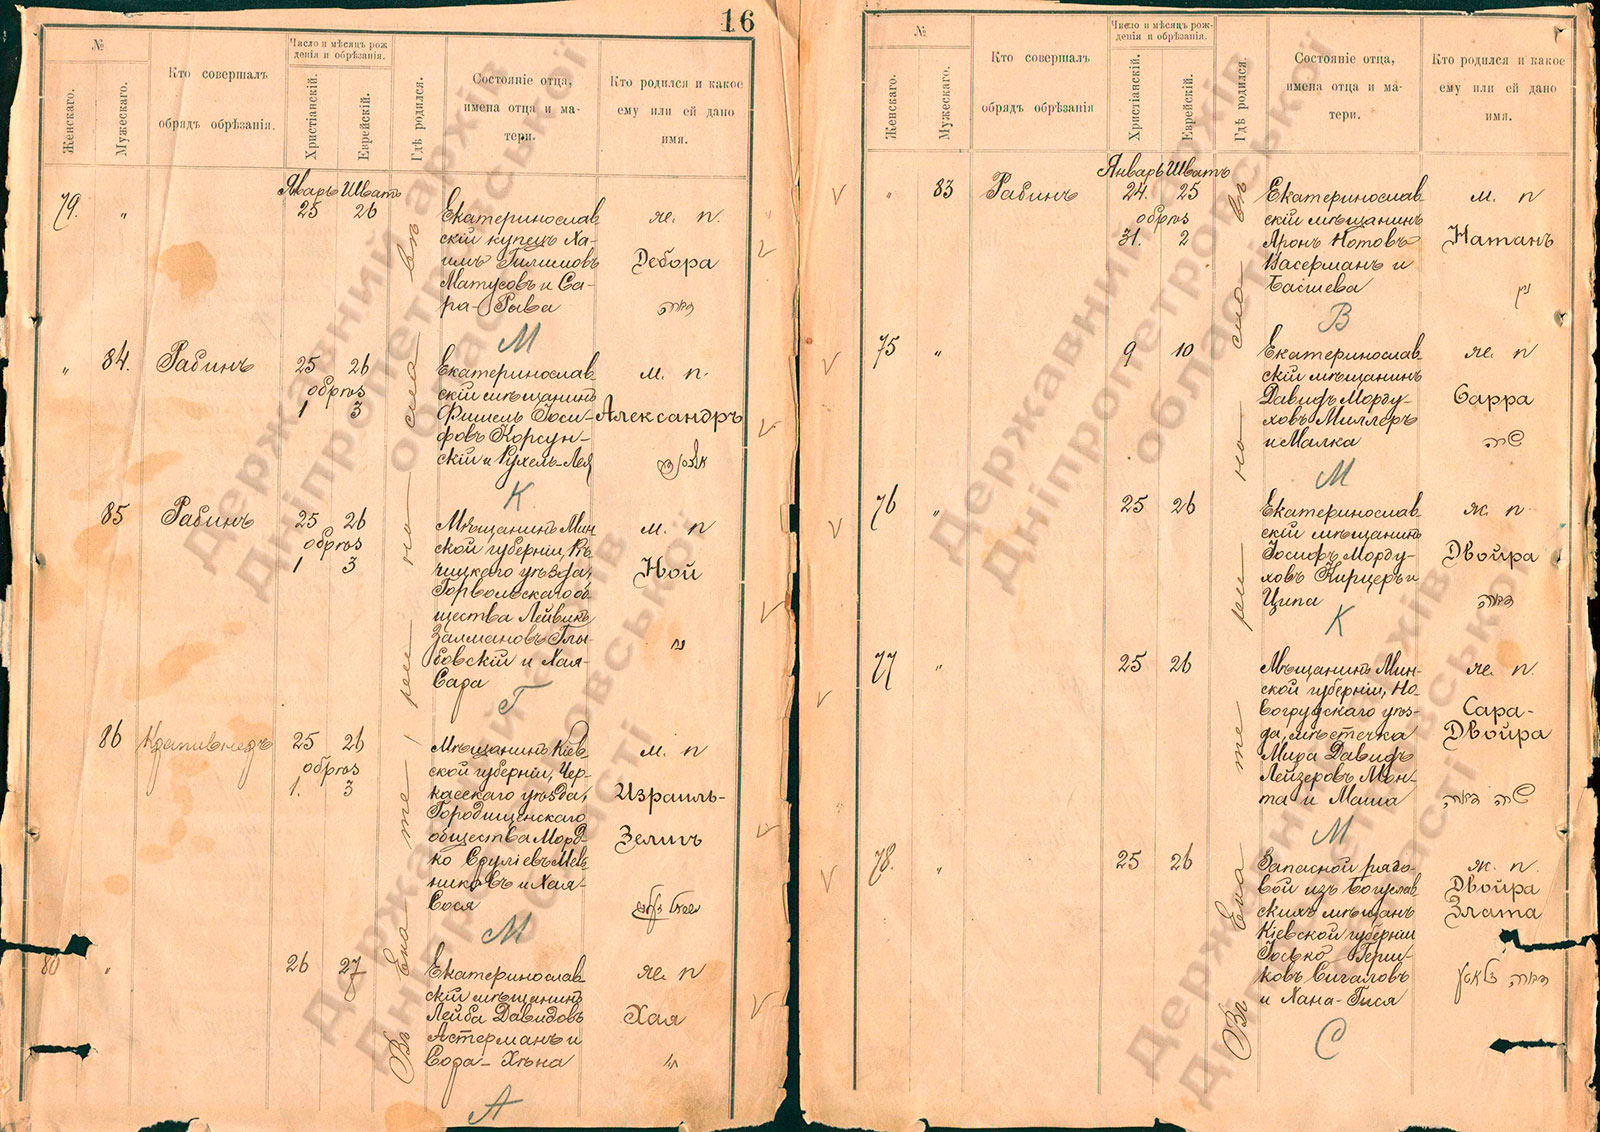 16
№
Женскаго.
Мужескаго.
Кто совершалъ
обрядъ обрѣзанія.
Число и мѣсяцъ рож-
денія и обрѣзанія.
Христіанскій.
Еврейскій.
Гдѣ родился.
Состояніе отца,
имена отца и ма-
тери.
Кто родился и какое
ему или ей дано
имя.
Январь Шватъ
79. „ 25 26
Екатеринослав
скій купецъ Ха-
имъ
Матусовъ и Са-
ра-Рыва
же. п.
Дебора
דבורה
М
„ 84. Рабинъ 25 26
обрѣз
1 3
Екатеринослав
скій мѣщанинъ
Фишель Іоси-
фовъ Корсун-
скій и Рухель-Лея
м. п.
Александръ
К
85 Рабинъ 25 26
обрѣз
1 3
Мѣщанинъ Мин
ской губерніи, Рѣ-
чицкаго уѣзда,
Горвольскаго об-
щества Лейвикъ
Залмановъ Глы-
бовскій и Хая-
Сара
м. п
Ной
נח
Г
86 25 26
обрѣз
1. 3
Мѣщанинъ Кіев
ской губерніи, Чер-
касскаго уѣзда,
Городищенскаго
общества Морд-
ко Сруліевъ Мель
никовъ и Хая-
Сося
м. п
Израиль-
Зелигъ
М
80 „ 26 27
Екатеринослав
скій мѣщанинъ
Лейба Давидовъ
Астерманъ и
Сора-Хьена
же. п
Хая
חי׳
А
Въ Ека те ри но сла вѣ
№
Женскаго.
Мужескаго.
Кто совершалъ
обрядъ обрѣзанія
Число и мѣсяцъ рож-
денія и обрѣзанія.
Христіанскій.
Еврейскій.
Гдѣ родился.
Состояніе отца,
имена отца и ма-
тери.
Кто родился и какое
ему или ей дано
имя.
Январь Шватъ
„ 83 Рабинъ 24. 25
обрѣз
31. 2
Екатеринослав
скій мѣщанинъ
Аронъ Нотовъ
Васерманъ и
Басшева
м. п
Натанъ
נתן
В
75 „ 9 10
Екатеринослав
скій мѣщанинъ
Давидъ Морду-
ховъ Миллеръ
и Малка
же. п
Сарра
שרה
М
76 „ 25 26
Екатеринослав
скій мѣщанинъ
Іосифъ Морду-
ховъ Кирцеръ и
Ципа
ж. п
Двойра
דבורה
К
77 „ 25 26
Мѣщанинъ Мин-
ской губерніи, Но-
вогрудскаго уѣз-
да, мѣстечка
Мира Давидъ
Лейзеровъ Мон-
та и Маша
же. п.
Сара-
Двойра
שרה דבורה
М
78. „ 25 26
Запасной рядо-
вой изъ Богуслав
скихъ мѣщанъ
Кіевской губерніи
Іосько Герш-
ковъ Сигаловъ
и Хана-Гися
ж. п.
Двойра
Злата
דבורה זלאטע
С
Въ Ека те ри но сла вѣ
Державний архів
Дніпропетровської
області